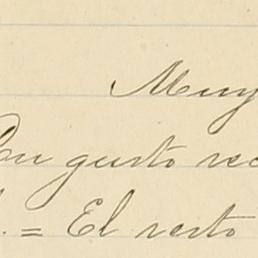 Muy
Con gusto rec
. = El resto